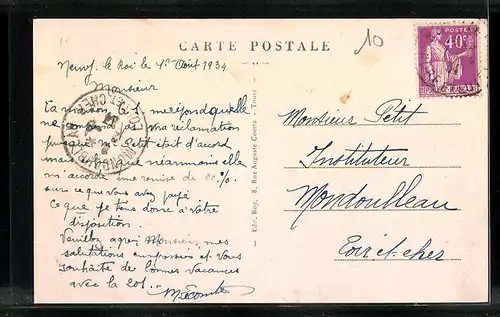 CARTE POSTALE
10
POSTES
40c
Neuvy le Roi le 1er Août 1934
Monsieur
La maison me répond qu'elle
ne comprend pas ma réclamation
puisque M. Petit était d'accord
mais que néanmoins elle
m'accorde une remise de 20 %
sur ce que vous avez payé
Ce que je tiens donc à votre
disposition.
Veuillez agréer Monsieur, mes
salutations empressées et vous
souhaite de bonnes vacances
avec la 201.
Edit. Roy, 8, Rue Auguste Comte - Tours
Monsieur Petit
Instituteur
Mondoubleau
Loir et cher